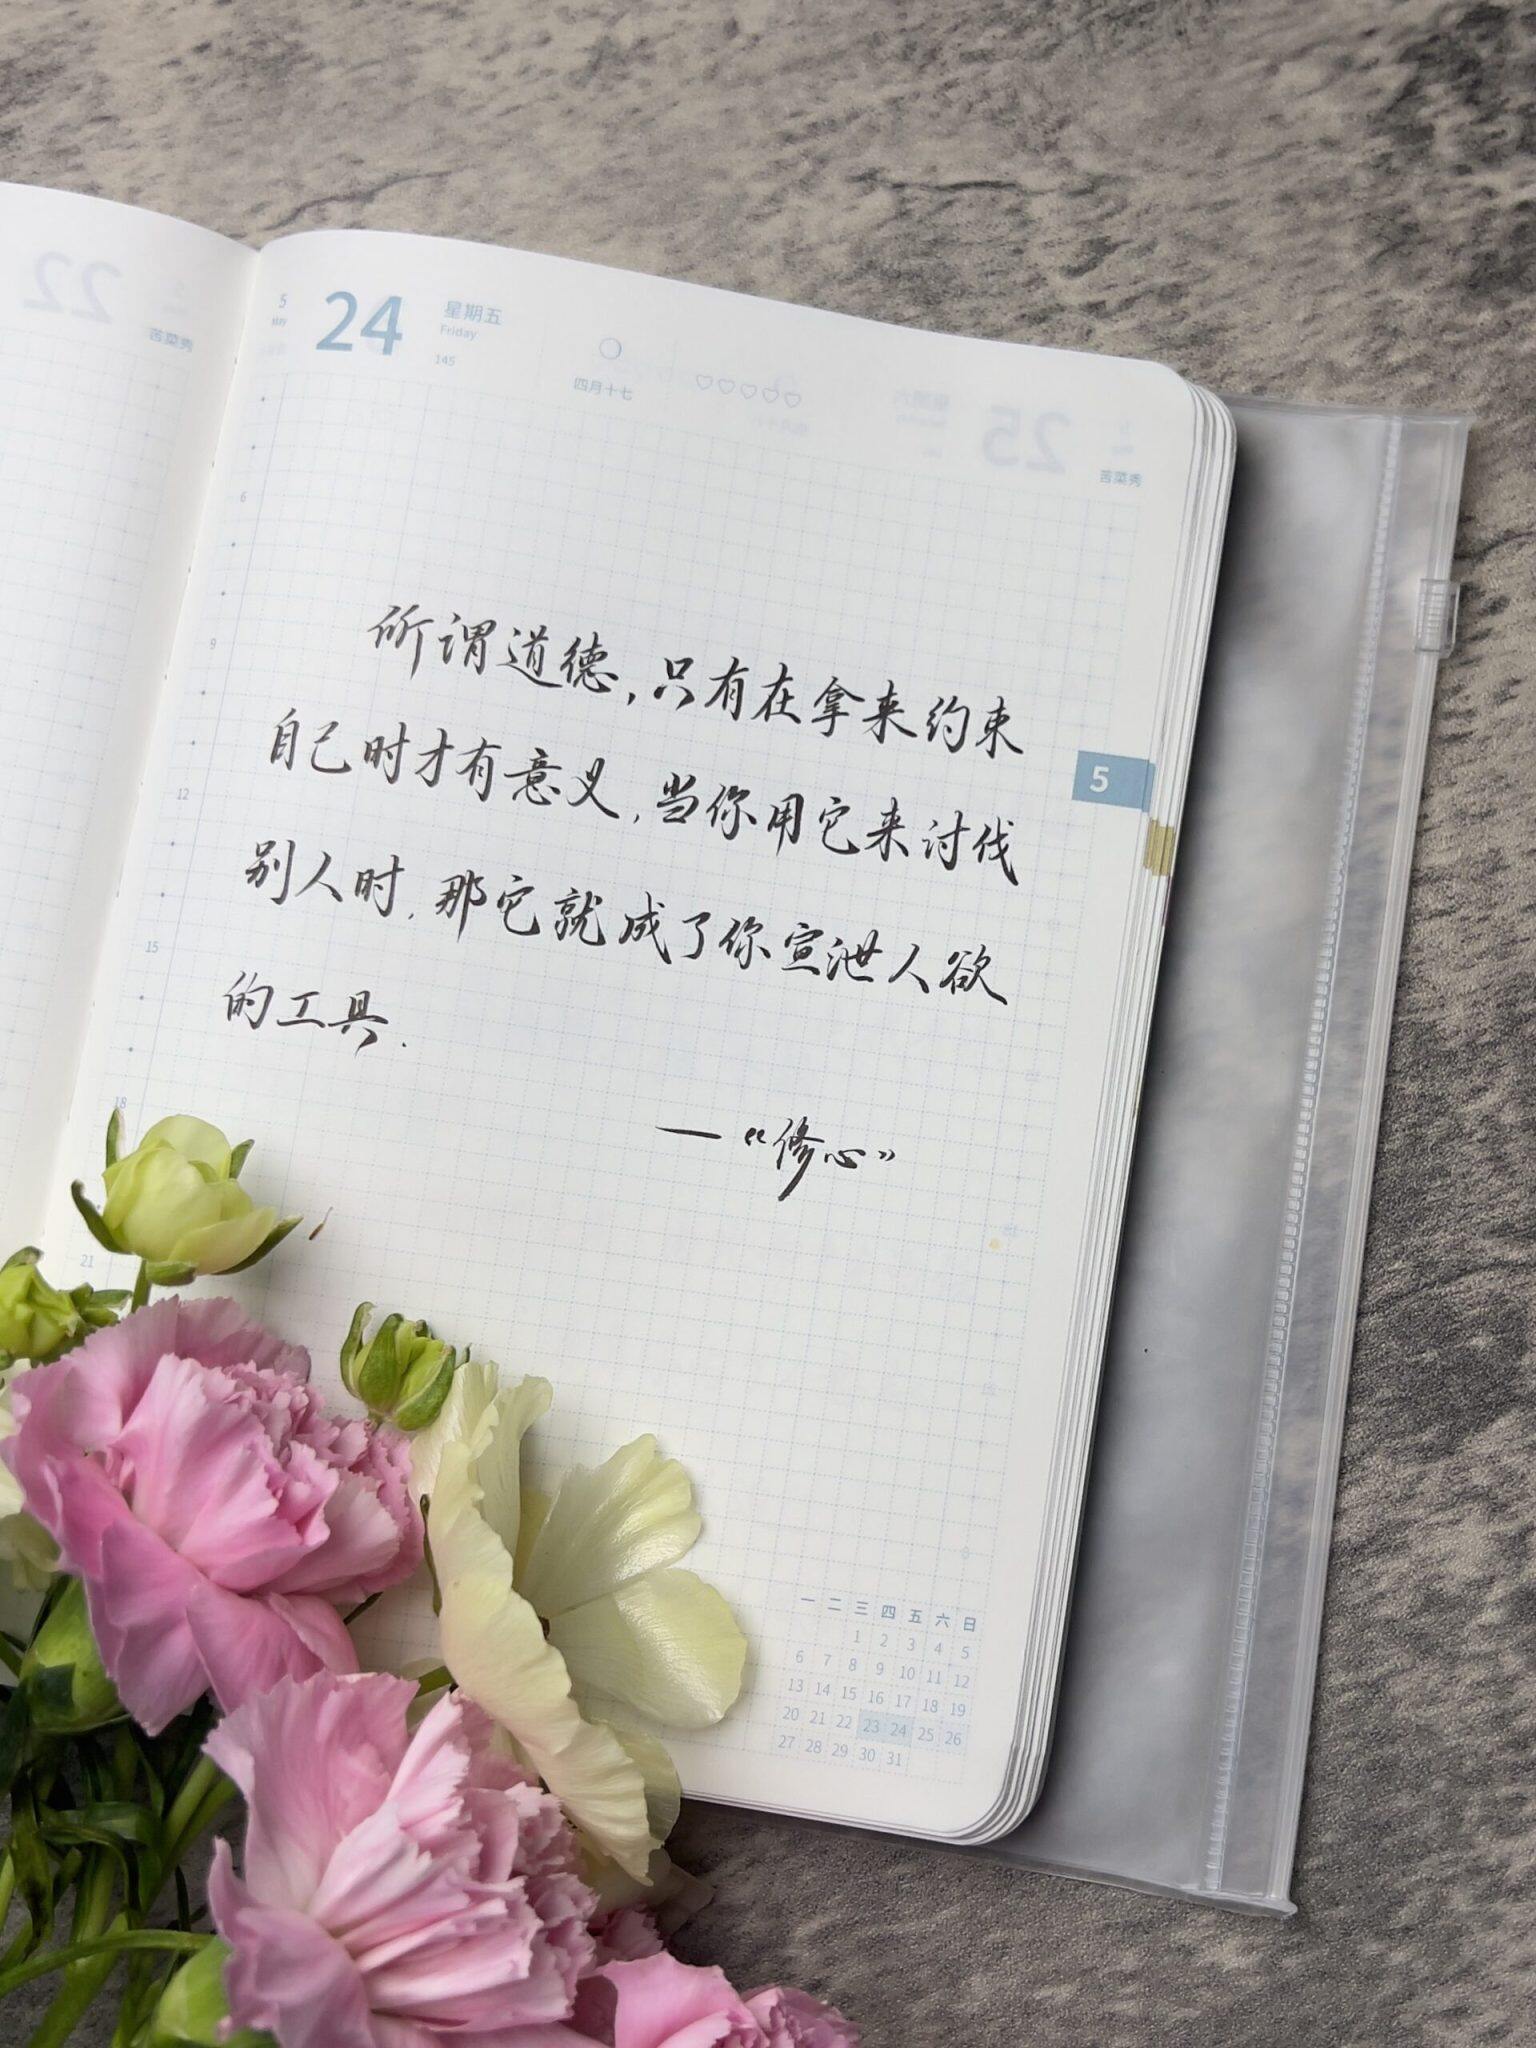 22
苦菜秀
5
May
24
星期五
Friday
145
四月十七
25
苦菜秀
6
9
12
15
18
21
所谓道德，只有在拿来约束
自己时才有意义，当你用它来讨伐
别人时，那它就成了你宣泄人欲
的工具.
—“修心”
5
一 二 三 四 五 六 日
1 2 3 4 5
6 7 8 9 10 11 12
13 14 15 16 17 18 19
20 21 22 23 24 25 26
27 28 29 30 31